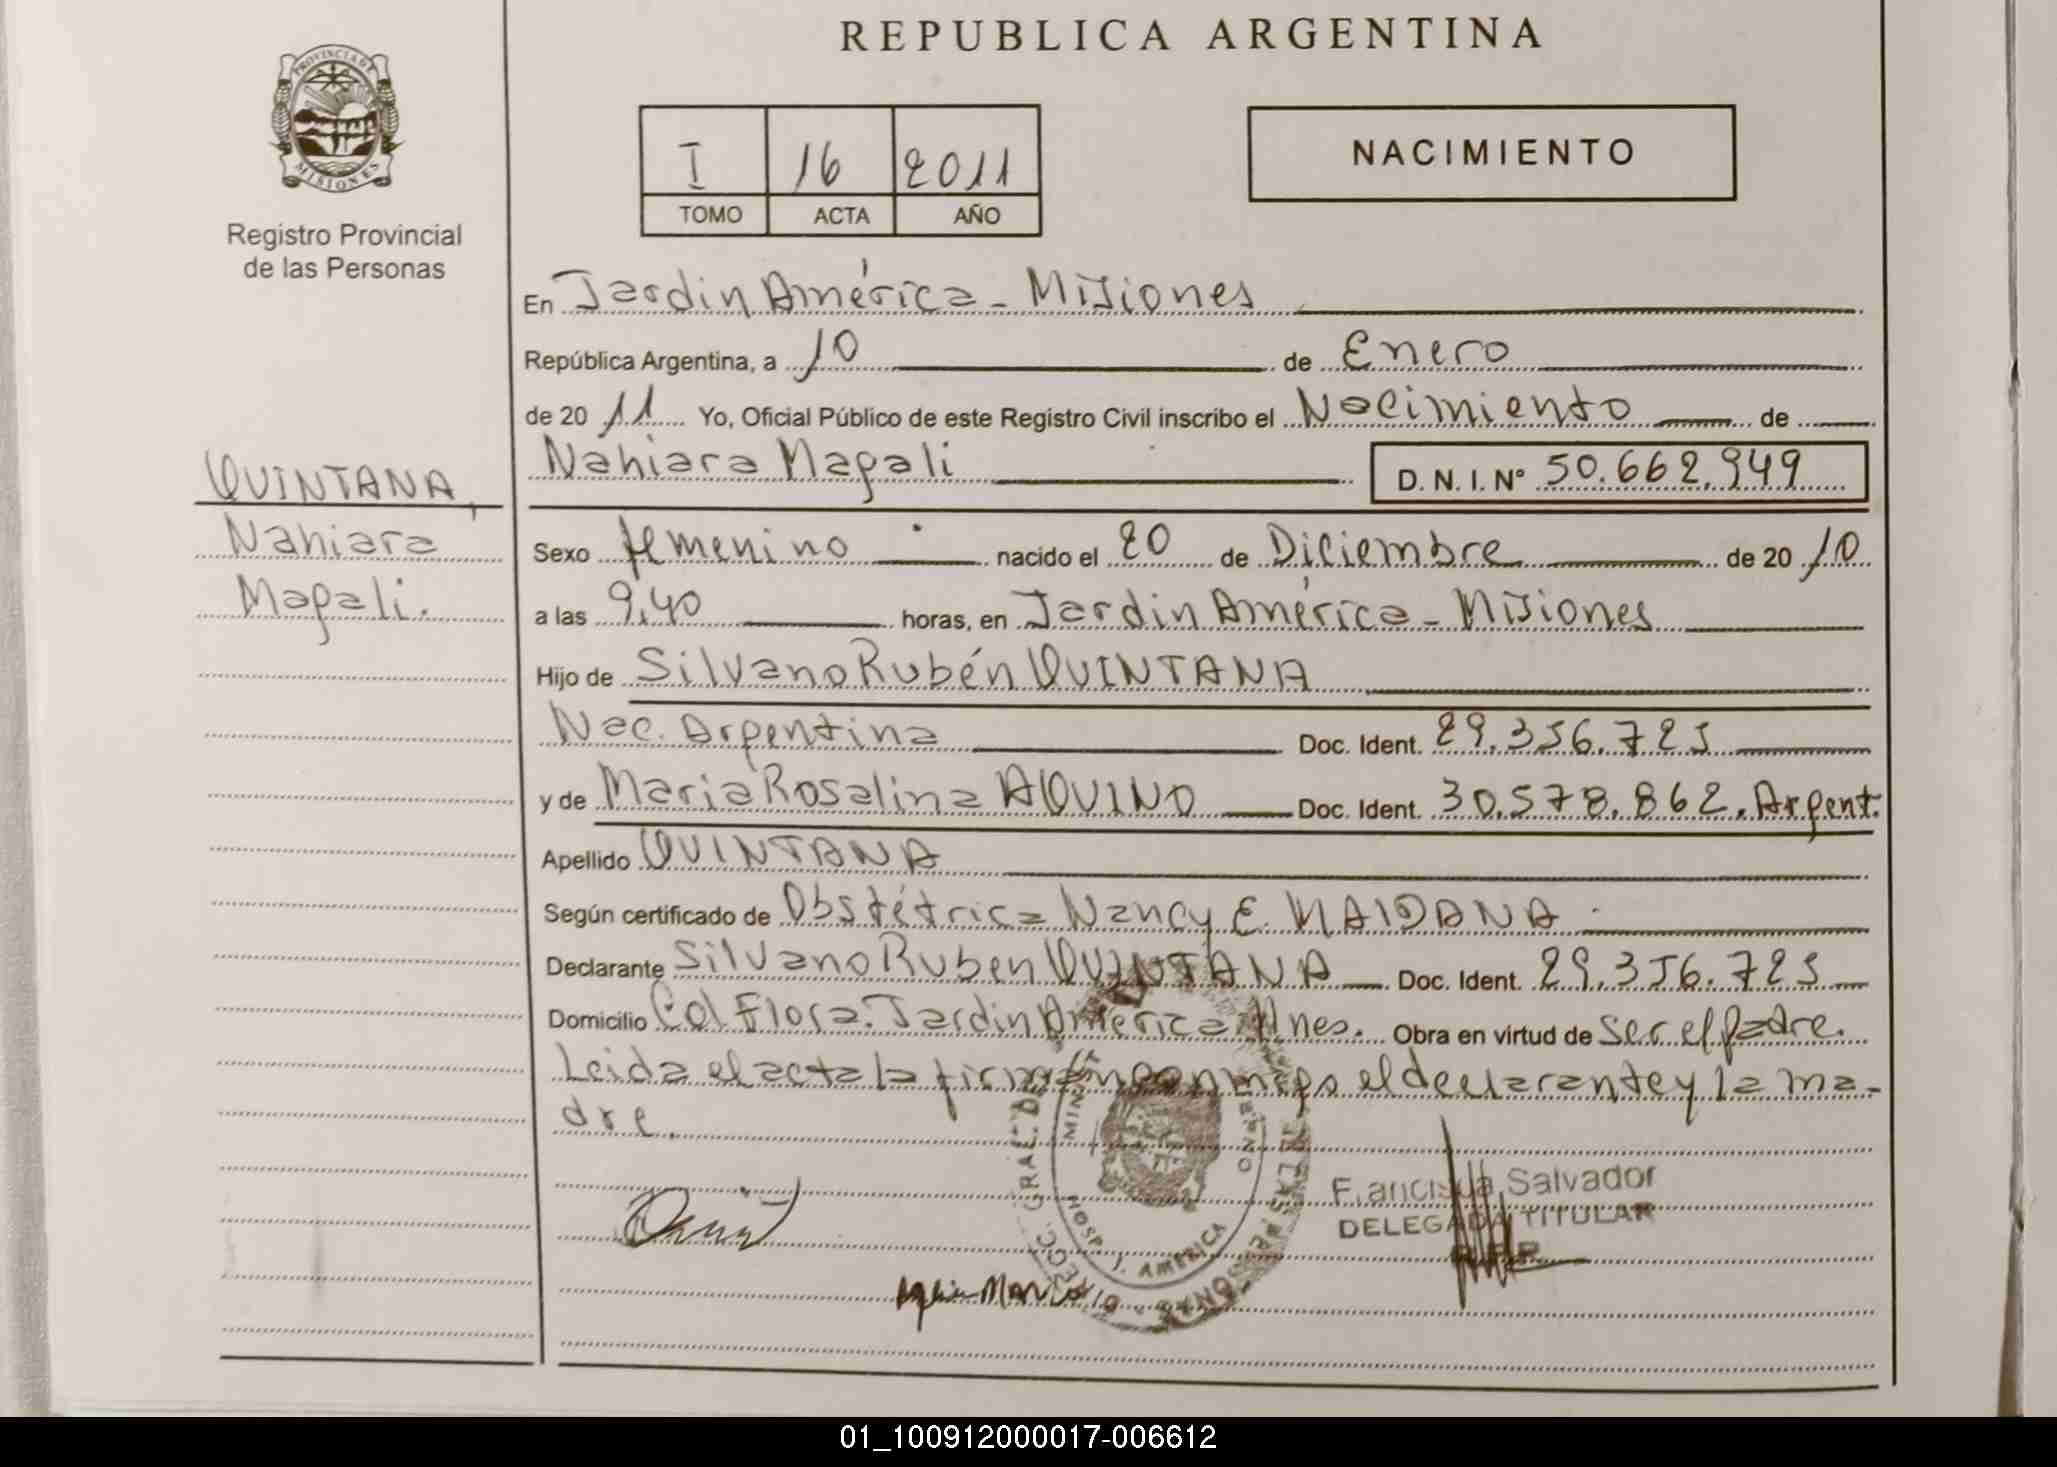 REPUBLICA ARGENTINA
PROVINCIA DE
MISIONES
Registro Provincial
de las Personas
I 16 2011
TOMO ACTA AÑO
NACIMIENTO
En Jardin América - Misiones
República Argentina, a 10 de Enero
de 20 11 Yo, Oficial Público de este Registro Civil inscribo el Nacimiento de
Nahiara Magali D. N. I. Nº 50.662.949
QUINTANA,
Nahiara
Magali.
Sexo femenino nacido el 20 de Diciembre de 20 10
a las 9,40 horas, en Jardin América - Misiones
Hijo de Silvano Rubén QUINTANA
Nac. Argentina Doc. Ident. 29.356.725
y de Maria Rosalina AQUINO Doc. Ident. 30.578.862. Argent.
Apellido QUINTANA
Según certificado de Obstétrica Nancy E. MAIDANA
Declarante Silvano Ruben QUINTANA Doc. Ident. 29.356.725
Domicilio Col Flora. Jardin América Mnes. Obra en virtud de ser el padre.
Leida el acta la firman por mego el declarante y la ma-
dre.
Francisca Salvador
DELEGADA TITULAR
R.P.P.
HOSP. J. AMERICA
01_100912000017-006612